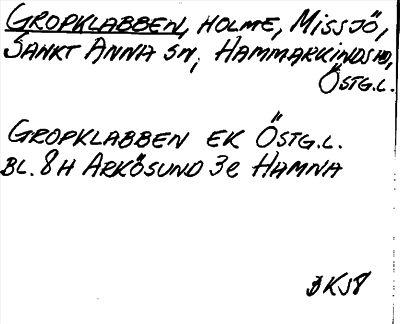 GROPKLABBEN, HOLME, MISSJÖ,
SANKT ANNA SN, HAMMARKINDS HD,
ÖSTG.L.
GROPKLABBEN EK ÖSTG.L.
BL. 8H ARKÖSUND 3e HAMNA